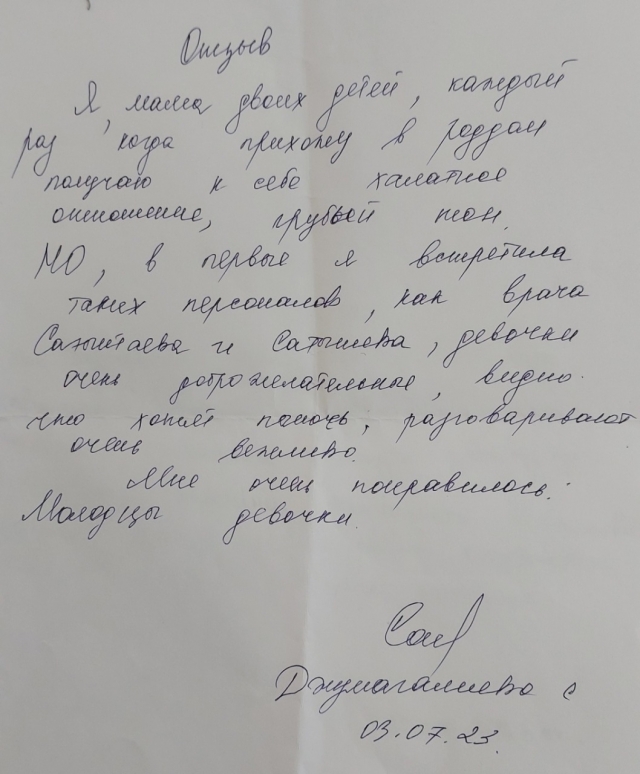 Отзыв
Я, мама двоих детей, каждый
раз когда прихожу в роддом
получаю к себе халатное
отношение, грубый тон.
НО, в первые я встретила
таких персоналов, как врача
и Сатылева, девочки
очень доброжелательные, видно
что хотят помочь, разговаривают
очень вежливо.
Мне очень понравилось.
Молодцы девочки.
Джумагалиева с
03.07.23.